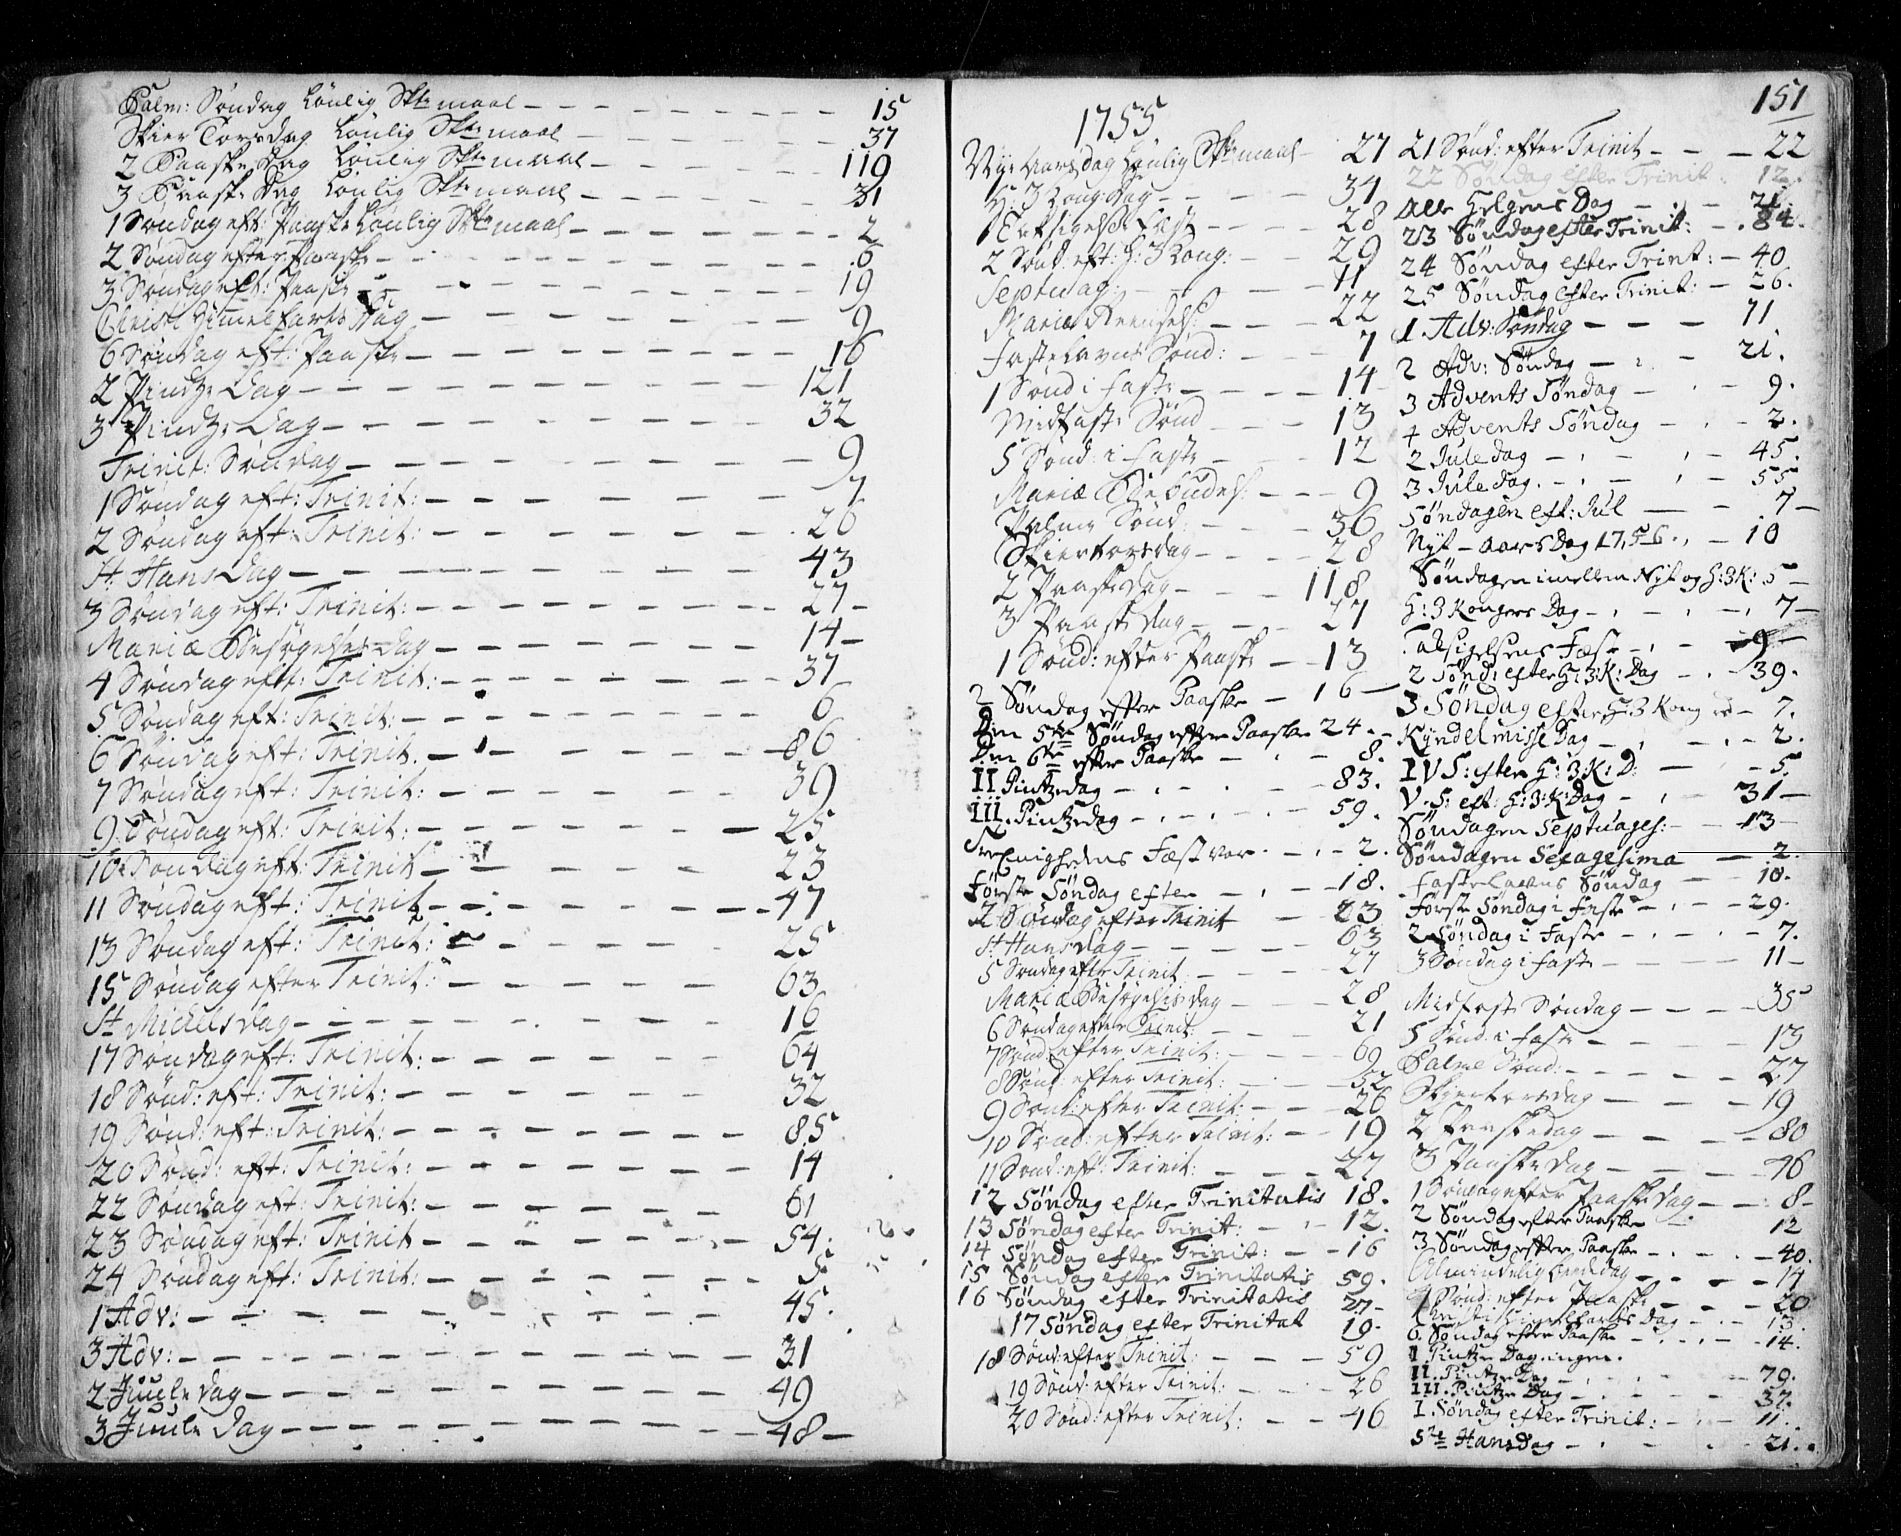 Palm: Søndag Lönlig Skr maal — 15
Skier Torsdag Lönlig Skr maal — 37
2 Paaske Dag Lönlig Skr maal — 119
3 Paaske Dag Lönlig Skr maal — 31
1 Søndag eft: Paaske Lönlig Skr maal — 2
2 Søndag efter Paaske — 6
3 Søndag eft: Paaske — 19
Christi Himmelfarts Dag — 9
6 Søndag eft: Paaske — 16
2 Pindtz: Dag — 121
3 Pindtz: Dag — 32
Trinit: Søndag — 9
1 Søndag eft: Trinit: — 7
2 Søndag eft: Trinit: — 26
St Hans Dag — 43
3 Søndag eft: Trinit: — 27
Mariæ Besøgelses Dag — 14
4 Søndag eft: Trinit: — 37
5 Søndag eft: Trinit: — 6
6 Søndag eft: Trinit. — 86
7 Søndag eft: Trinit: — 39
9 Søndag eft: Trinit: — 25
10 Søndag eft: Trinit — 23
11 Søndag eft: Trinit — 47
13 Søndag eft: Trinit: — 25
15 Søndag efter Trinit: — 63
St Michels dag — 16
17 Søndag eft: Trinit: — 64
18 Sønd: eft: Trinit: — 32
19 Sønd: eft: Trinit: — 85
20 Sønd: eft: Trinit: — 14
22 Søndag eft: Trinit: — 61
23 Søndag eft: Trinit — 54
24 Søndag eft: Trinit: — 5
1 Adv: — 45
3 Adv: — 31
2 Juule dag — 49
3 Juule dag — 48
1755
Nyt Aarsdag Lönlig Skr maal — 27
H: 3 Kong: Dag — 34
28
2 Sønd: eft: H: 3 Kong: — 29
Septuag: — 11
Mariæ Renselse — 22
Fastelavns Sønd: — 7
1 Sønd i Faste — 14
Midfaste Sønd — 13
5 Sønd: i Faste — 12
Mariæ Bebudels: — 9
Palme Sønd: — 36
Skiertorsdag — 28
2 Paaskedag — 118
3 Paaske dag — 27
1 Sønd: efter Paaske — 13
2 Søndag efter Paaske — 16
Den 5te Søndag efter Paaske 24
Den 6te efter Paaske — 8.
II Pintzedag — 83.
III. Pintzedag — 59.
Treenighedens Fæst var — 2.
Første Søndag efter — 18.
2 Søndag efter Trinit — 23
St Hans dag — 63
5 Søndag efter Trinit: — 27
Mariæ Besøgelses dag — 28
6 Søndag efter Trinit: — 21
7 Sønd: efter Trinit: — 69
8 Sønd: efter Trinit: — 52
9 Sønd: efter Trinit: — 26
10 Sønd: efter Trinit: — 19
11 Sønd: eft: Trinit: — 27
12 Søndag efter Trinitatis 18.
13 Søndag efter Trinit: — 12.
14 Søndag efter Trinit: — 16
15 Søndag efter Trinitatis 59.
16 Søndag efter Trinitatis 27
17 Søndag efter Trinitat 19.
18 Sønd: efter Trinit: — 59
19 Sønd: efter Trinit: — 26
20 Sønd: efter Trinit: — 46
151
21 Sønd: efter Trinit — 22
22 Søndag efter Trinit: 12.
Alle Helgens Dag — 21.
23 Søndag efter Trinit: — 84.
24 Søndag efter Trinit: — 40
25 Søndag efter Trinit: — 26.
1 Adv: Søndag — 11
2 Adv: Søndag — 21.
3 Advents Søndag — 9.
4 Advents Søndag — 2.
2 Jule dag — 45.
3 Jule dag. — 55
Søndagen eft: Jul — 7
Nyt-aars Dag 1756. — 10
Søndagen imellem Nyt og H: 3 K: 5
H: 3 Kongers Dag — 7
9
2 Sønd: efter H: 3: K: Dag — 39.
3 Søndag efter H: 3 Konger — 7.
Kyndelmisse Dag — 2.
IV S: efter H: 3: K: D: — 5.
V. S: eft: H: 3: K: Dag — 31
Søndagen Septuages: — 13
Søndagen Sexagesima — 2.
Fastelavns Søndag — 10.
Første Søndag i Faste — 29.
2 Søndag i Faste — 7.
3 Søndag i Faste — 11
Midfaste Søndag — 35
5 Sønd: i Faste — 13
Palme Sønd: — 27
Skiertorsdag — 19
2 Paaskedag — 80
3 Paaske dag — 46
1 Søndag efter Paaske dag — 8
2 Søndag efter Paaske 12
3 Søndag efter Paaske — 40.
Almindelig Bededag — 14
4 Sønd: efter Paaske — 20
Christi Himmelfarts Dag — 13.
6 Søndag efter Paaske — 14.
I Pintze Dag ingen.
II. Pintze Dag — 79.
III. Pintze Dag — 37.
I. Søndag efter Trinit: — 11.
Ste Hansdag — 21.